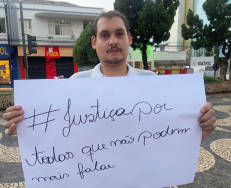 # Justiça por
todas que não podem
mais falar